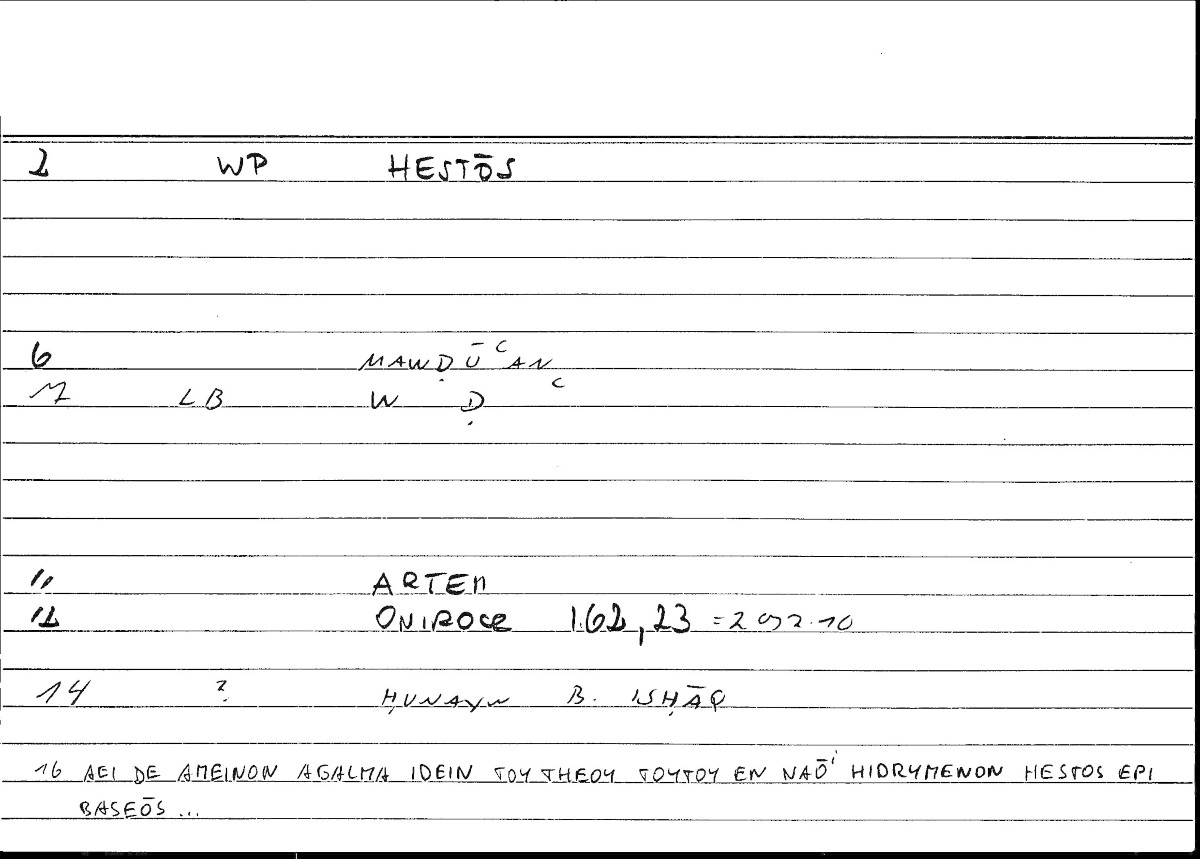 2 WP HESTŌS
6 MAWḌŪʿAN
7 LB W Ḍ ʿ
11 ARTEM
12 ONIROCR 162,23 =292.10
14 ? ḤUNAYN B. ISḤĀQ
16 AEI DE AMEINON AGALMA IDEIN TOY THEOY TOYTOY EN NAŌ' HIDRYMENON HESTOS EPI
BASEŌS ...